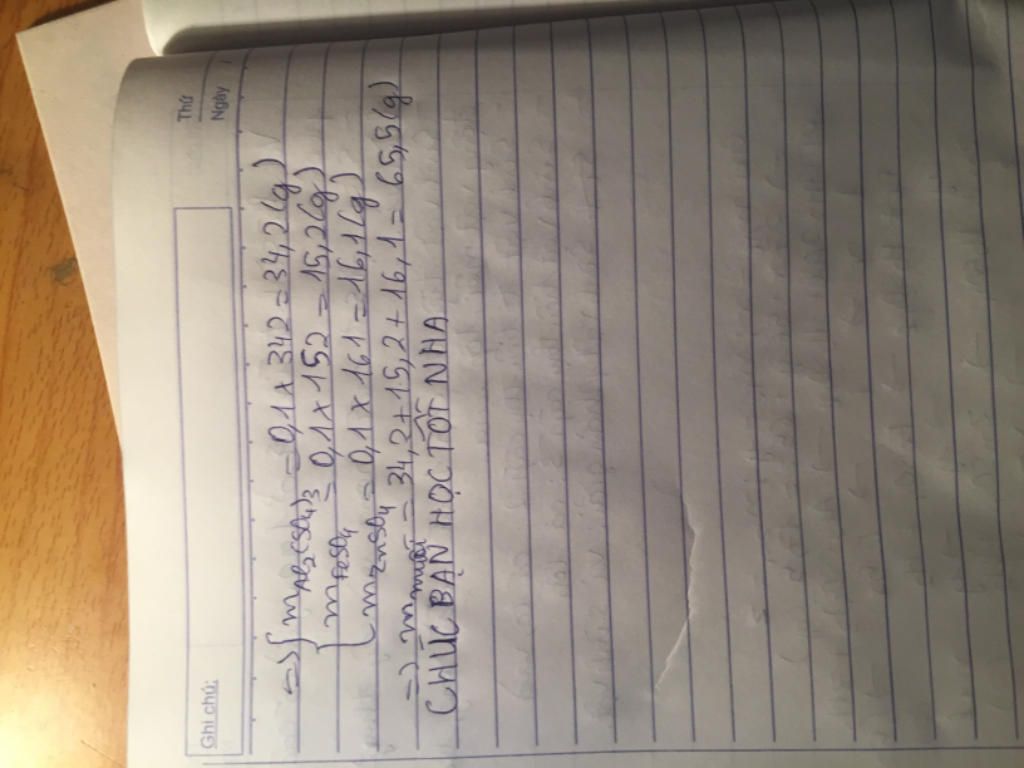 Ghi chú:
Thứ
Ngày
=> { mAl2(SO4)3 = 0,1 x 342 = 34,2 (g)
{ mFeSO4 = 0,1 x 152 = 15,2 (g)
{ mZnSO4 = 0,1 x 161 = 16,1 (g)
=> mmuối = 34,2 + 15,2 + 16,1 = 65,5 (g)
CHÚC BẠN HỌC TỐT NHA